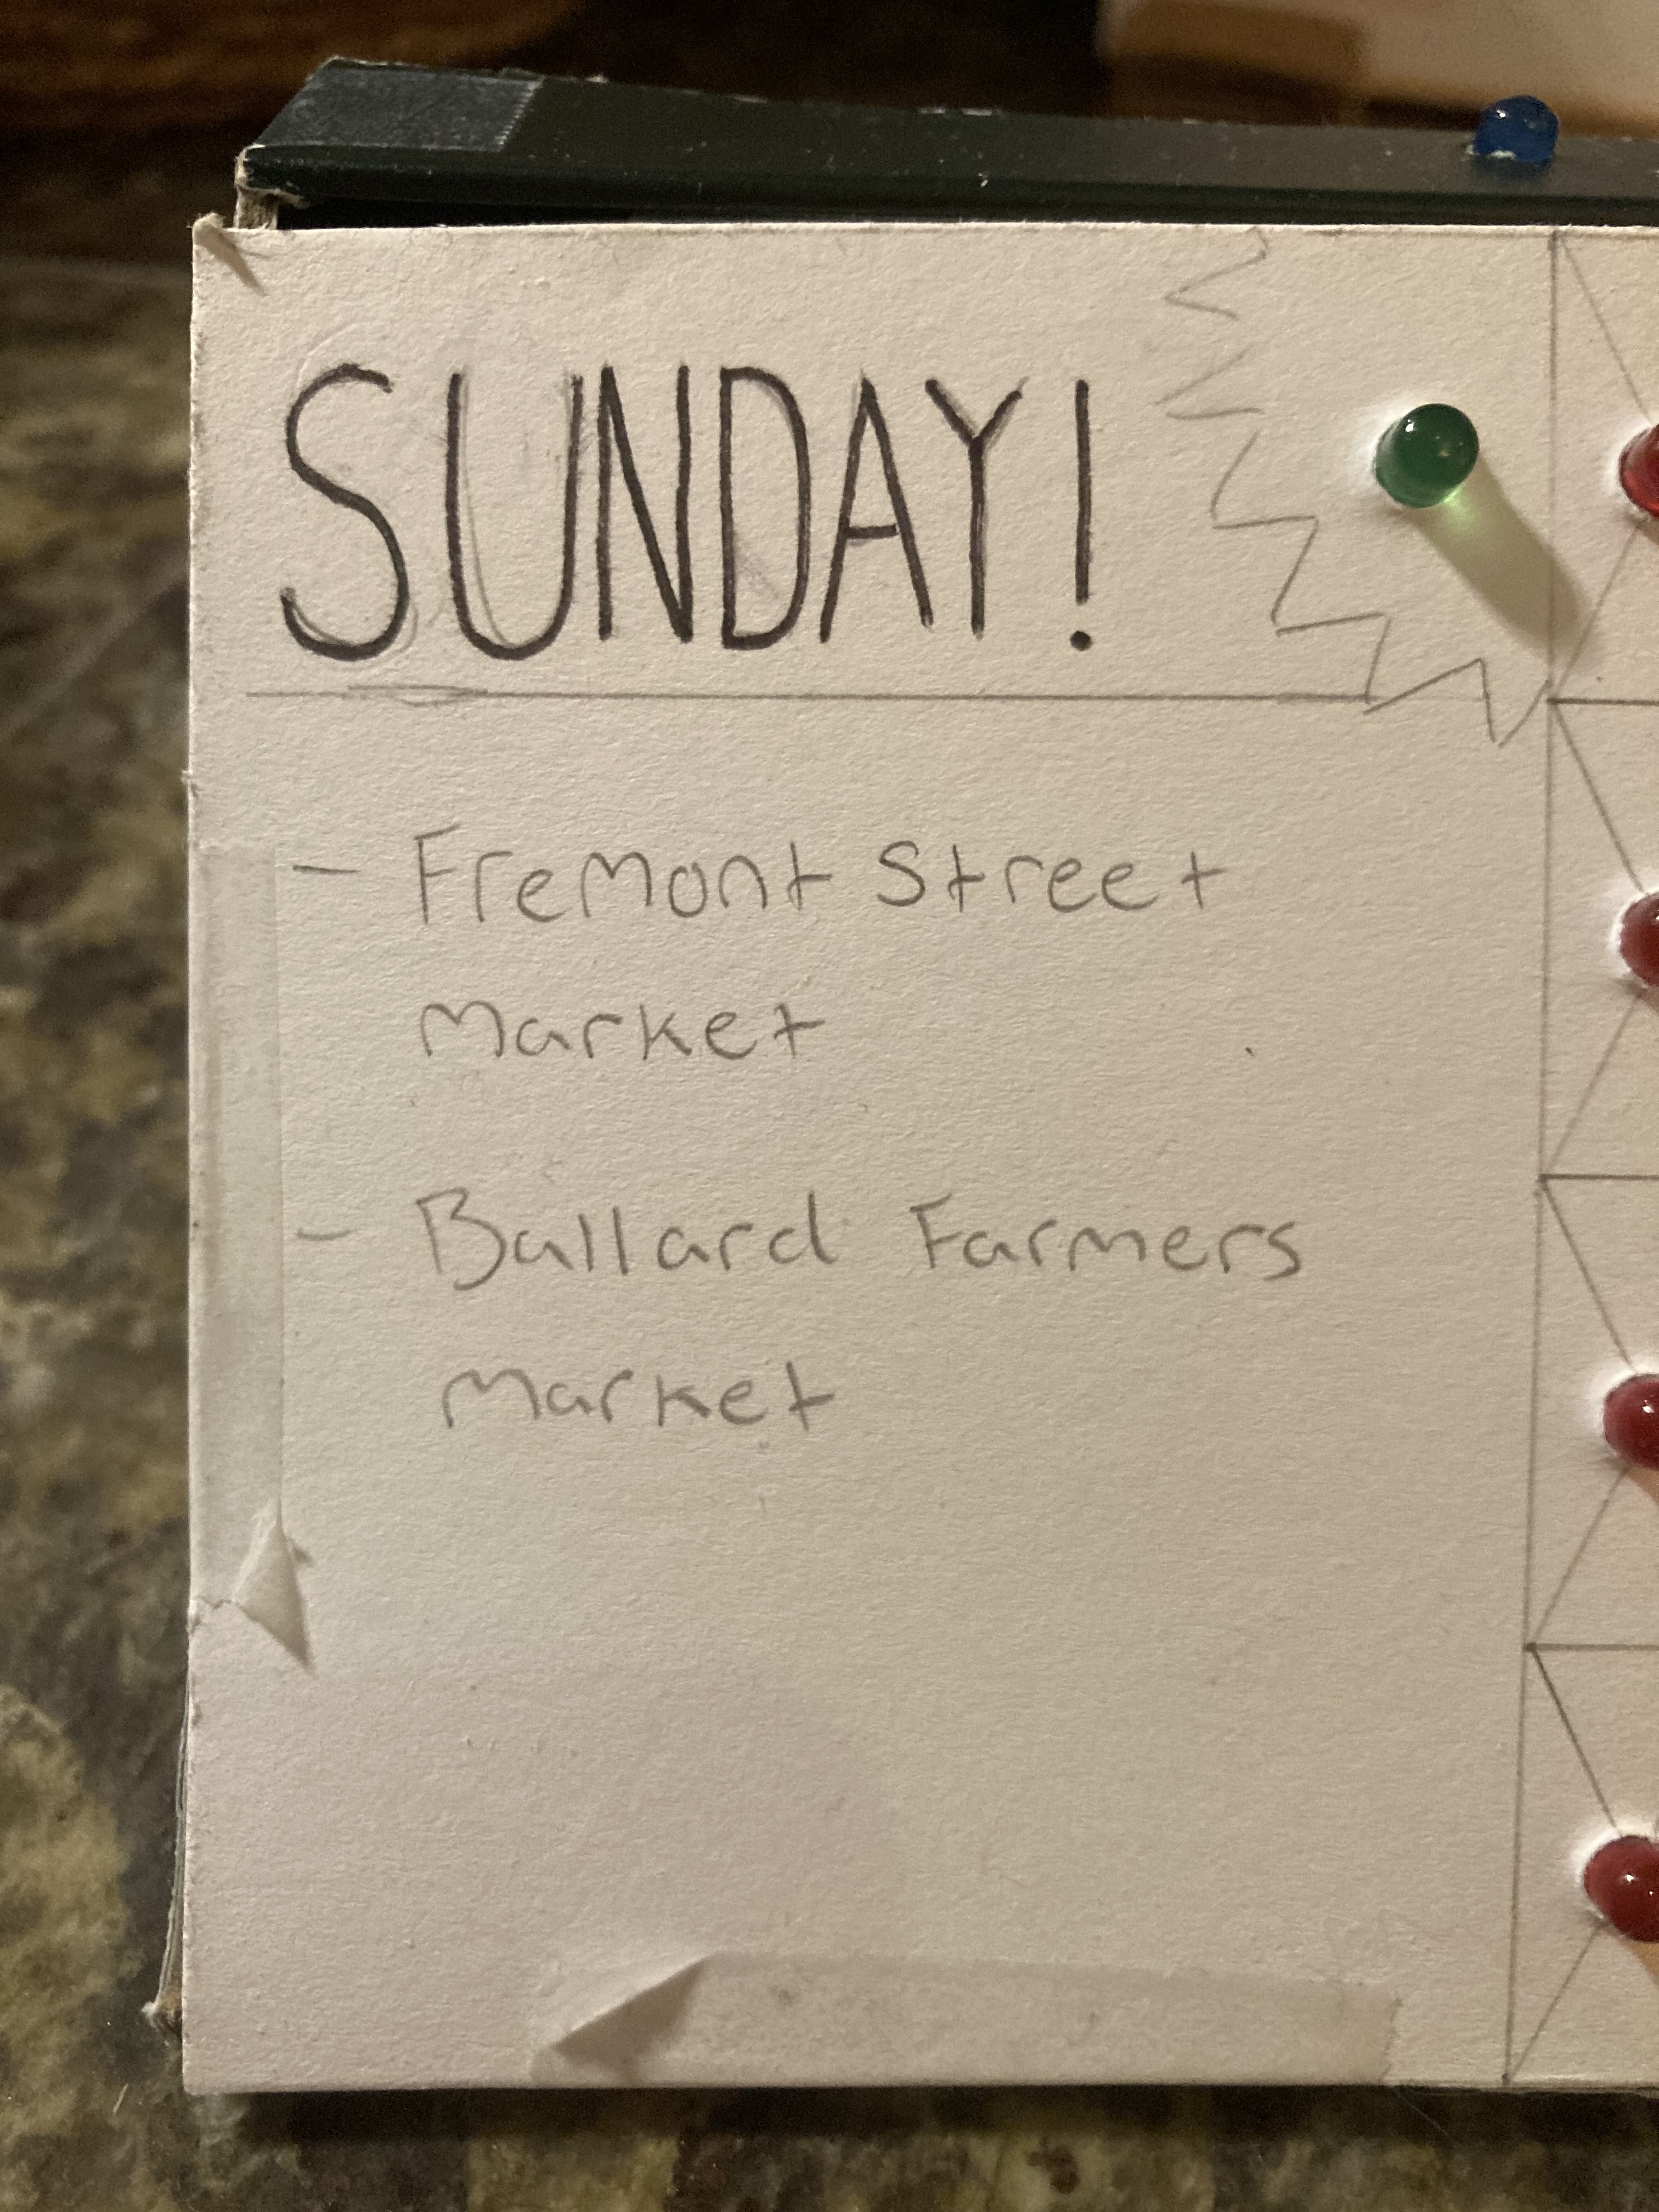 SUNDAY!
- Fremont Street
Market
- Ballard Farmers
Market